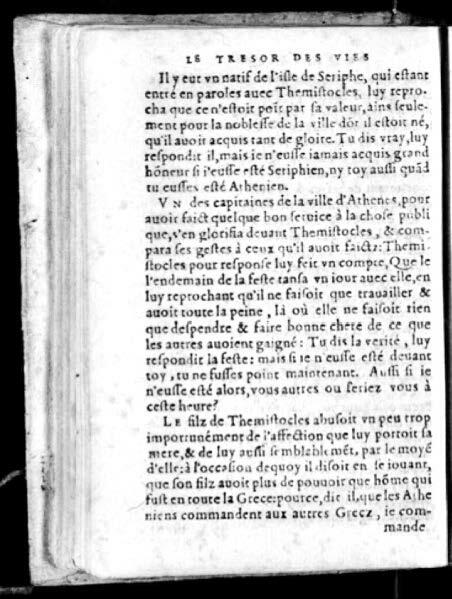 LE TRESOR DES VIES
Il y eut vn natif de l'isle de Seriphe, qui estant
entré en paroles auec Themistocles, luy repro-
cha que ce n'estoit poīt par sa valeur, ains seule-
ment pour la noblesse de la ville dōt il estoit né,
qu'il auoit acquis tant de gloire. Tu dis vray, luy
respondit il, mais ie n'eusse iamais acquis grand
hōneur si i'eusse esté Seriphien, ny toy aussi quād
tu eusses esté Athenien.
VN des capitaines de la ville d'Athenes, pour
auoir faict quelque bon seruice à la chose publi
que, s'en glorifia deuant Themistocles, & com-
para ses gestes à ceux qu'il auoit faictz: Themi-
stocles pour response luy feit vn compte, Que le
l'endemain de la feste tansa vn iour auec elle, en
luy reprochant qu'il ne faisoit que trauailler &
auoit toute la peine, là où elle ne faisoit rien
que despendre & faire bonne chere de ce que
les autres auoient gaigné: Tu dis la verité, luy
respondit la feste: mais si ie n'eusse esté deuant
toy, tu ne fusses point maintenant. Aussi si ie
n'eusse esté alors, vous autres ou seriez vous à
ceste heure?
LE filz de Themistocles abusoit vn peu trop
importunément de l'affection que luy portoit sa
mere, & de luy aussi semblablemēt, par le moyē
d'elle: à l'occasion dequoy il disoit en se iouant,
que son filz auoit plus de pouuoir que hōme qui
fust en toute la Grece: pource, dit il, que les Athe
niens commandent aux autres Grecz, ie com-
mande